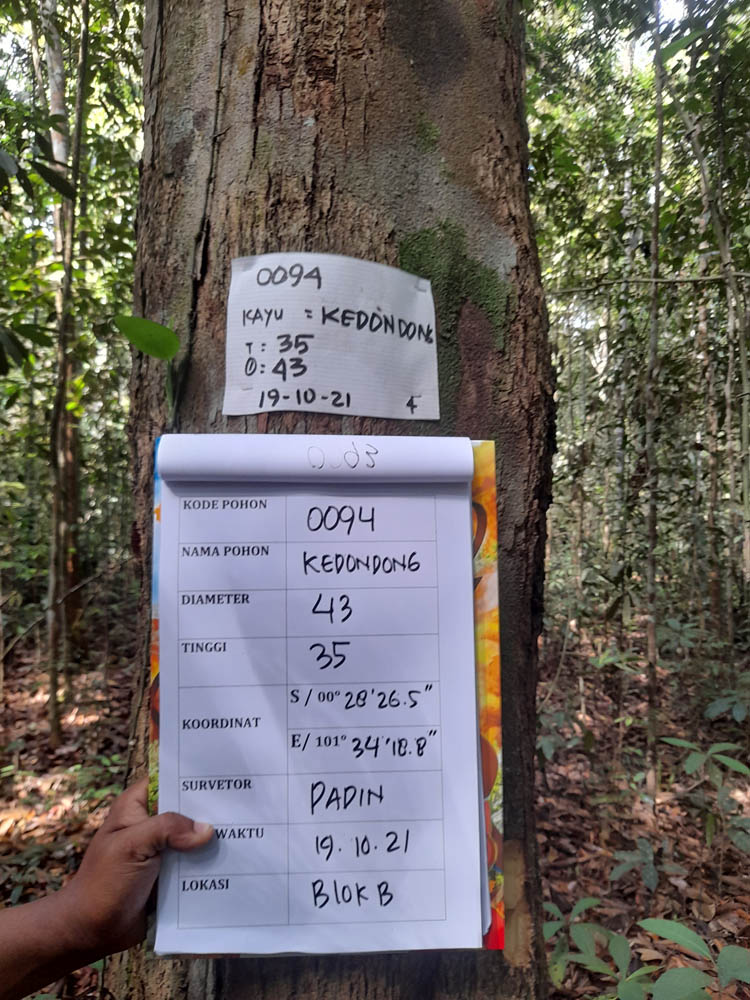 0094
KAYU = KEDONDONG
T : 35
Ø : 43
19-10-21 4
KODE POHON 0094
NAMA POHON KEDONDONG
DIAMETER 43
TINGGI 35
KOORDINAT S / 00° 28'26.5"
E/ 101° 34'18.8"
SURVETOR PADIN
WAKTU 19.10.21
LOKASI BLOK B